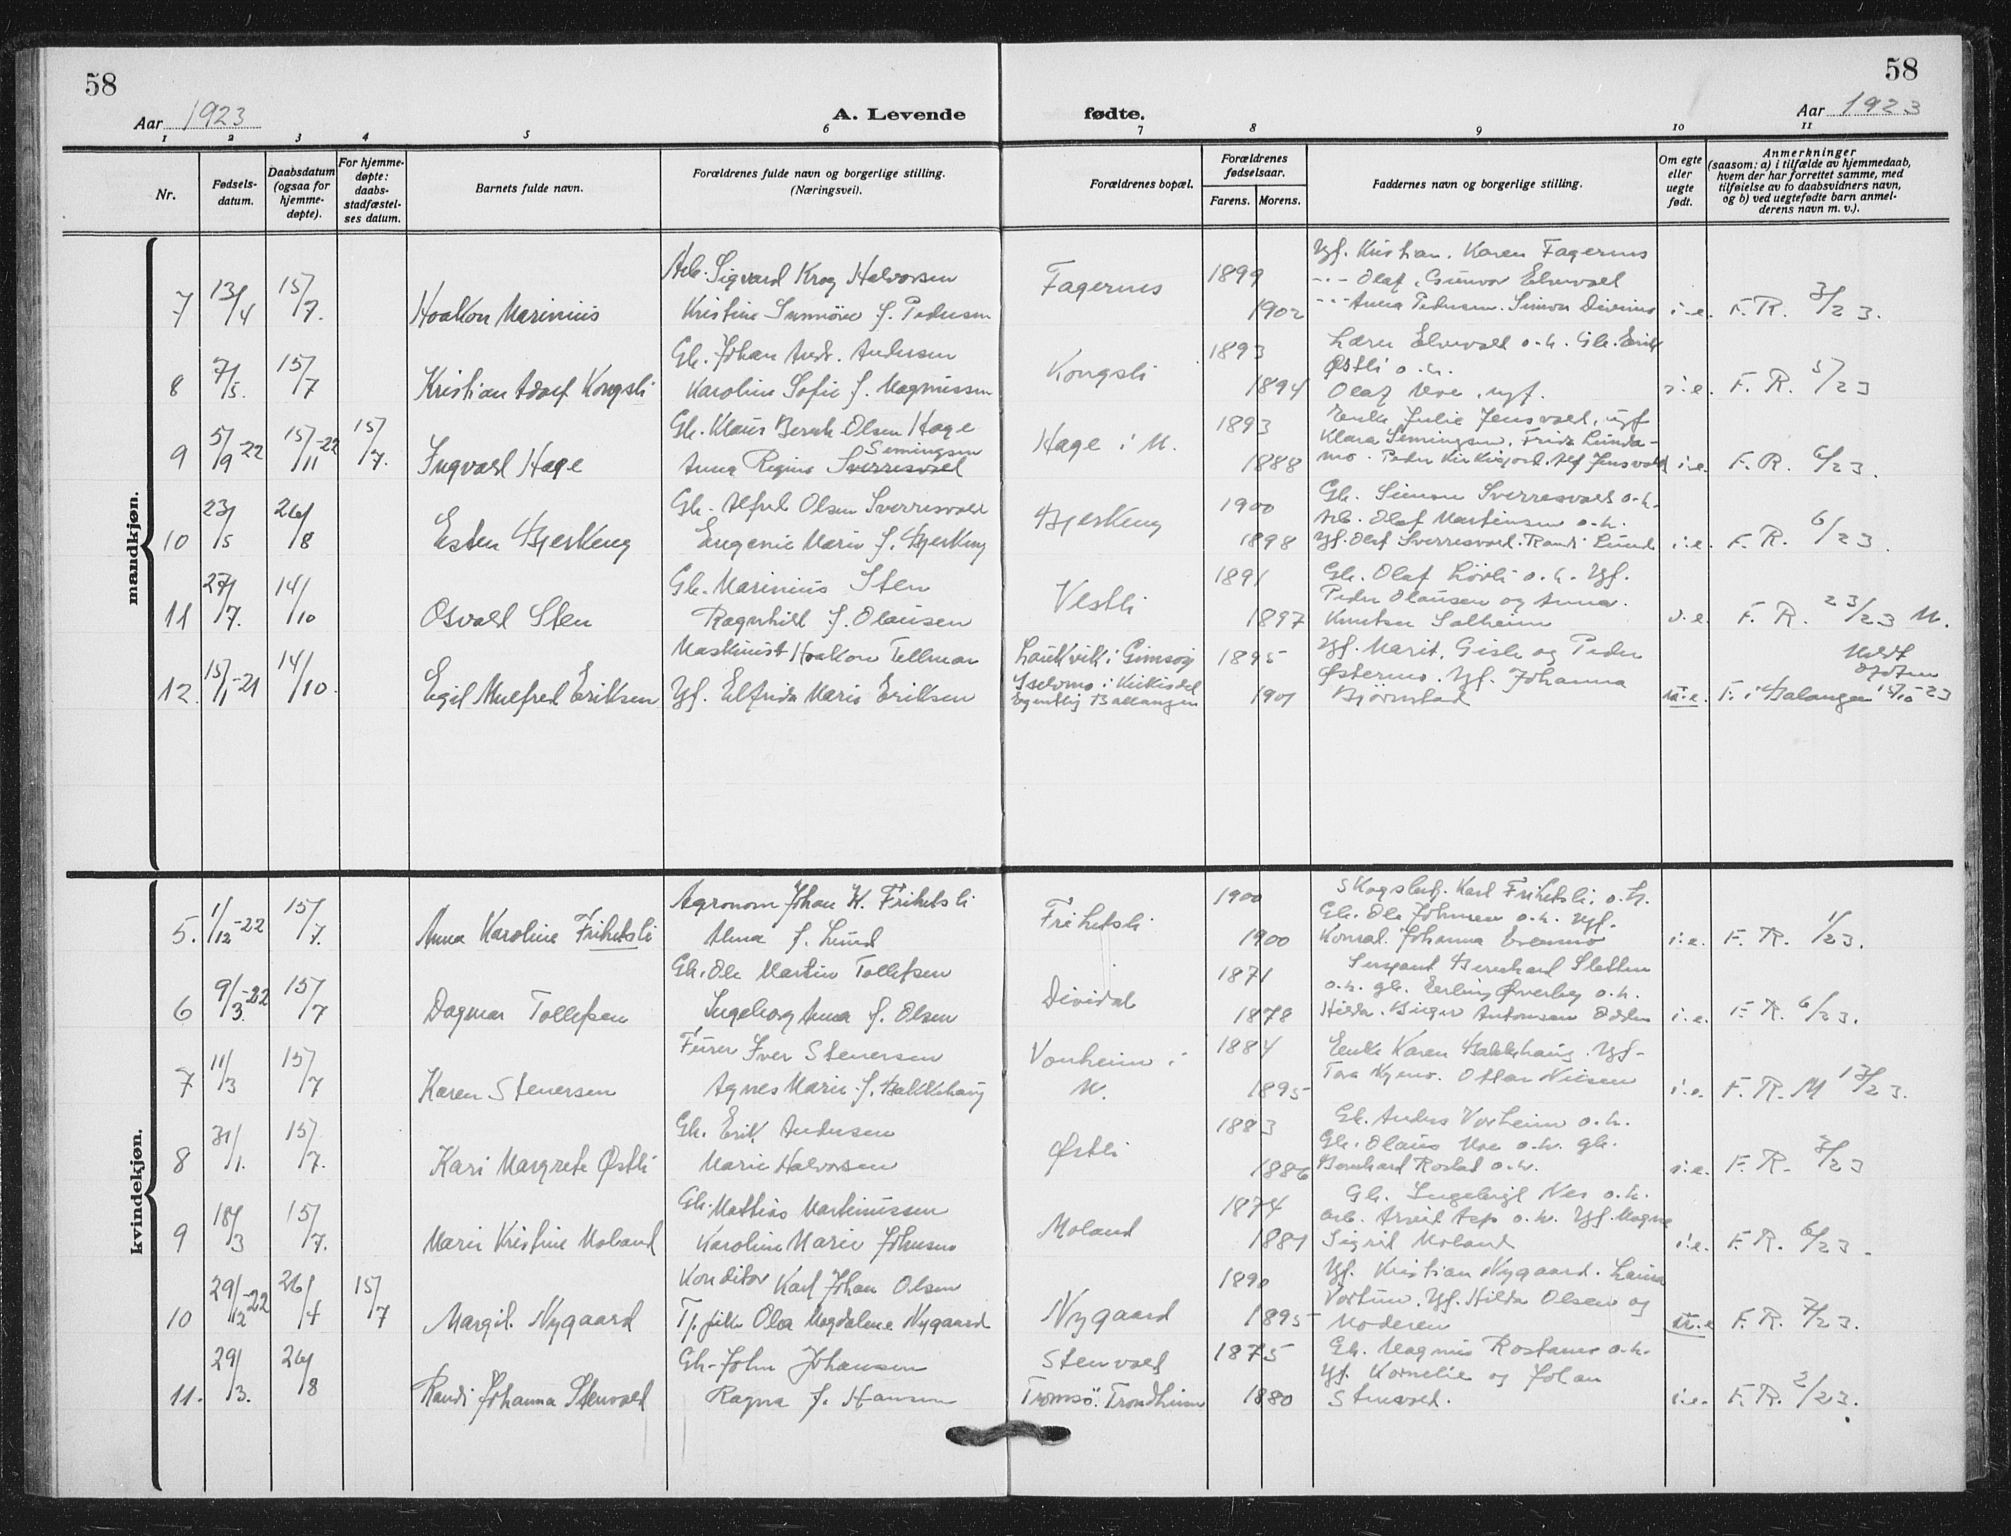 58
58
Aar 1923
A. Levende fødte.
Aar 1923
1 2 3 4 5 6 7 8 9 10 11
Nr.
Fødsels-
datum.
Daabsdatum
(ogsaa for
hjemme-
døpte).
For hjemme-
døpte:
daabs-
stadfæstel-
ses datum.
Barnets fulde navn.
Forældrenes fulde navn og borgerlige stilling.
(Næringsvei).
Forældrenes bopæl.
Forældrenes
fødselsaar.
Farens. Morens.
Faddernes navn og borgerlige stilling.
Om egte
eller
uegte
født.
Anmerkninger
(saasom: a) i tilfælde av hjemmedaab,
hvem der har forrettet samme, med
tilføielse av to daabsvidners navn,
og b) ved uegtefødte barn anmel-
derens navn m. v.).
mandkjøn.
7 13/4 15/7. Haakon Marinius
Arb. Sigvard Krog Halvorsen
Kristine f. Pedersen
Fagernes
1899
1902
Yf. Kristian. Karen Fagernes
--- Olaf, Gunvor Elvevold
--- Anna Pedersen. Simon
i.e. F. R. 3/23.
8 7/5. 15/7 Kristian Adolf Kongsli
Gb. Johan Andr. Andersen
Karoline Sofie f. Magnussen
Kongsli
1893
1894
Lærer Elvevold o.h. Gb. Erik
Østli o.h.
Olaf Moe, ugf.
i.e. F. R. 5/23
9 5/9-22 15/11-22 15/7. Ingvald Hage
Gb. Klaus Olsen Hage
Semingsen
Anna Regine Sverresvold
Hage i M.
1893
1888
Enke Julie Jensvold, ugf
Klara Semingsen, Frida Lunda-
mo. Peder Kirkesjord. Alf Jensvold
i.e. F. R. 6/23.
10 23/5 26/8 Esten Bjerkeng
Gb. Alfred Olsen Sverresvold
Eugenie Marie f. Bjerkeng
Bjerkeng
1900
1898
Gb. Simon Sverresvold o.h.
Arb. Olaf Martinsen o.h.
Yf. Olaf Sverresvold. Randi Lund
i.e. F. R. 6/23.
11 27/7. 14/10 Osvald Sten
Gb. Marinius Sten
Ragnhild f. Olausen
Vestli
1891
1897
Gb. Olaf Løvli o.h. Yf.
Peder Olausen og Anna
Knutsen Solheim
i.e. F. R. 23/23 M.
12. 15/1-21 14/10. Egil Alfred Eriksen
Maskinist Haakon Tellman
Yf. Elfrida Marie Eriksen
Laukvik i Gimsøy
i Kirkesdal
Egentlig Ballangen
1895
1901
Yf. Marit, Gisle og Peder
Østermo. Yf. Johanna
Bjørnstad
u.e. F. i Balangen 15/10-23
kvindekjøn.
5. 1/12-22 15/7. Anna Karoline Frihetsli
Agronom Johan K. Frihetsli
Alma f. Lund
Frihetsli
1900
1900
Skogsbetj. Karl Frihetsli. o.h.
Gb. Ole Johnsen o.h. Ugf.
Konrad. Johanna Evenmo
i.e. F. R. 1/23.
6 9/3.-22 15/7 Dagmar Tollefsen
Gb. Ole Martin Tollefsen
Ingeborg Anna f. Olsen
Dividal
1871
1878
Sersjant Bernhard Sletten
o.h. gb. Erling Øverby o.h.
Hilda. Birger Antonsen
i.e. F. R. 6/23.
7 11/3 15/7 Karen Stenersen
Furer Iver Stenersen
Agnes Marie f. Bakkehaug
Vonheim i
M.
1884
1895
Enke Karen Bakkehaug. Ugf.
Tora Nymo. Ottar Nilsen
i.e. F. R. M 13/23.
8 31/1. 15/7. Kari Margrete Østli
Gb. Erik Andersen
Marie Halvorsen
Østli
1883
1886
Gb. Anders Vonheim o.h.
Gb. Olaus Moe o.h. gb.
Bernhard Rostad o.h.
i.e. F. R. 3/23
9 18/3 15/7. Marie Kristine Moland
Gb. Mattias Martinussen
Karoline Marie Johnsen
Moland
1874
1881
Gb. Ingebrigt Nes o.h.
arb. Arvid Asp o.h. Ugf. Magne
Sigrid Moland
i.e. F. R. 6/23.
10 29/12-22 26/4 15/7 Margit Nygaard
Konditor Karl Johan Olsen
Tj. pike Olea Magdalene Nygaard
Nygaard
1890
1895
Yf. Kristian Nygaard. Laura
Yf. Hilda Olsen og
Moderen
u.e F. R. 7/23.
11. 29/3. 26/8 Randi Johanna Stenvold
Gb. John Johansen
Ragna f. Hansen
Stenvold
Tromsö. Trondheim
1875
1880
Gb. Magnus Rostamo o.h.
Yf. Kornelie og Johan
Stenvold.
i.e. F. R. 2/23.